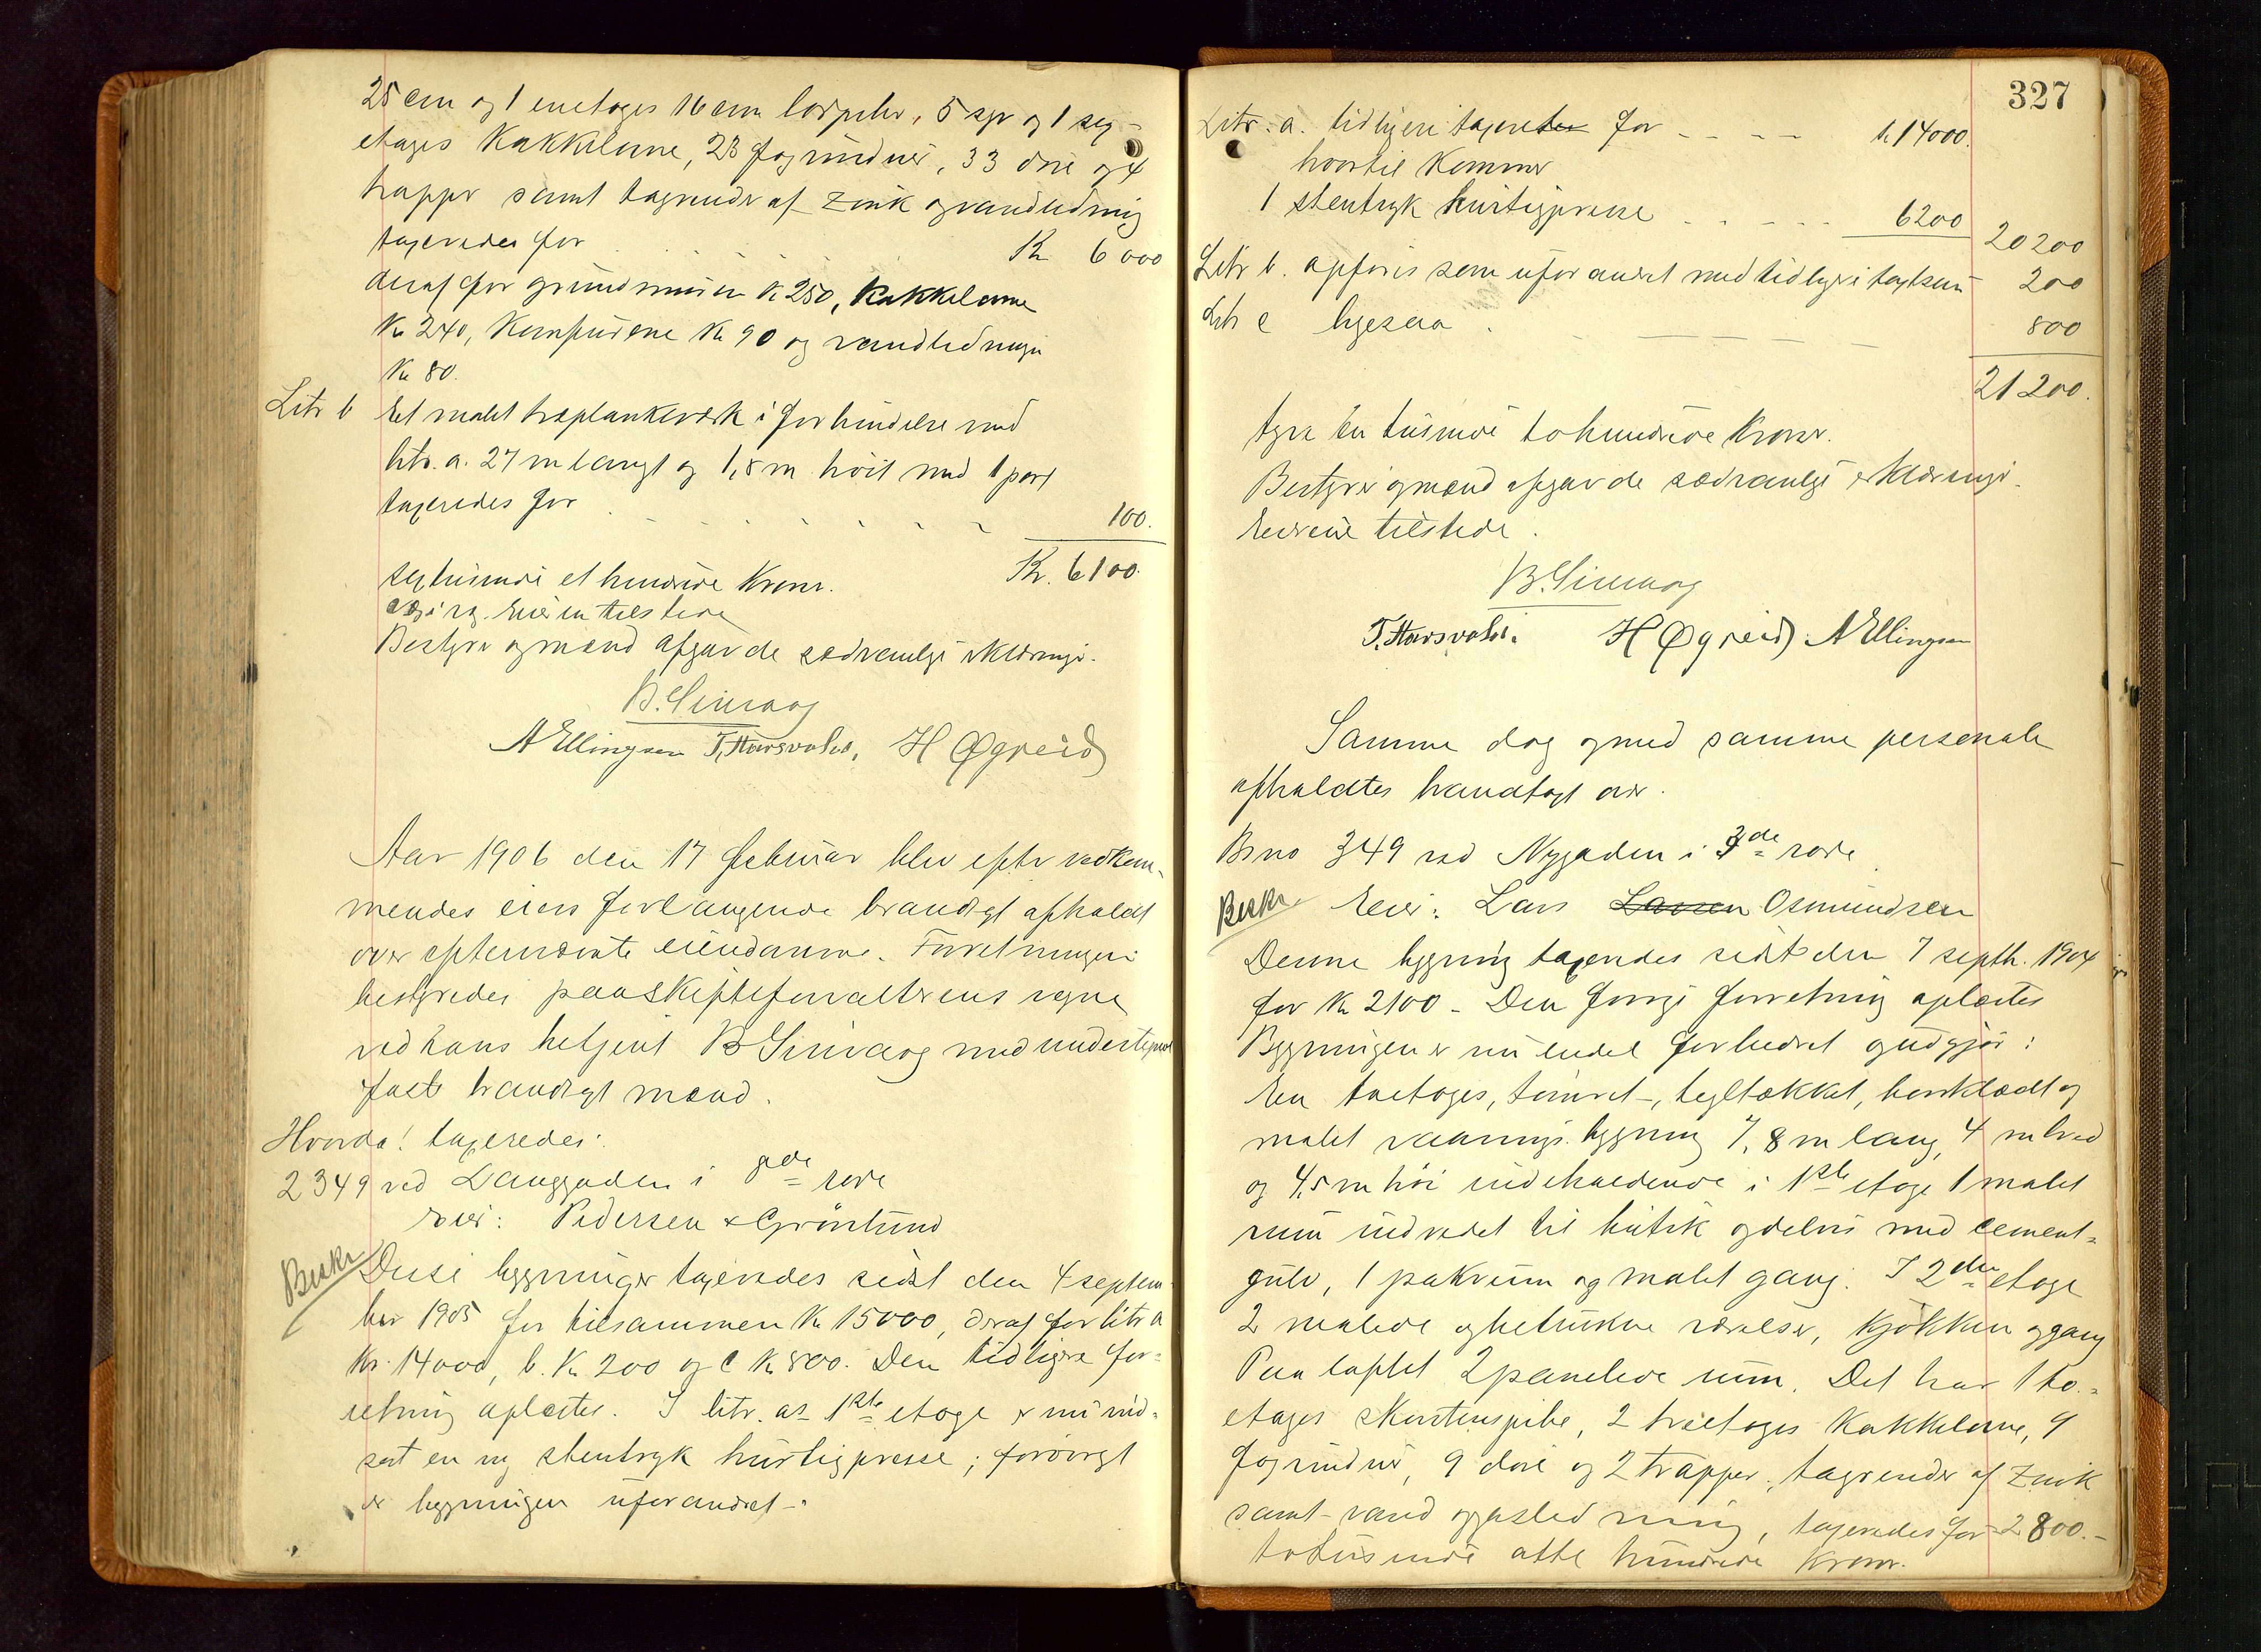 25 cm og 1 enetages 16 cm 5 og 1 sex-
etages Kakkelovne, 23 fag vinduer, 33 döre og 4
trapper samt tagrender af zink og vandledning
taxeredes for Kr 6000
deraf for grundmuren Kr 250, Kakkelovne
Kr 240, Komfurene Kr 90 og vandledningen
Kr 80.
Litr b Et malet træplankeværk i forbindelse med
litr. a. 27 m langt og 1,8 m höit med 1 port
taxeredes for 100.
Kr. 6100.
sextusinde et hundrede Kroner.
Eieren tilstede
Bestyrer og mænd afgav de sædvanlige erklæringer.
B. Sinvaag
A Ellingsen T. Harsvold. H Øgreid
Aar 1906 den 17 februar blev efter vedkom-
mendes eiers forlangende brandtaxt afholdt
over efternævnte eiendomme. Forretningen
bestyredes paa Skifteforvalterens vegne
ved hans betjent B Sinvaag med undertegnede
faste brandtaxtmænd.
Hvorda! taxeredes:
2349 ved Langgaden i rode
Eier: Pedersen & Grönlund
Beskr
Disse bygninger taxeredes sidst den 4 septem-
ber 1905 for tilsammen Kr 15000, deraf for litr a
Kr. 14000, b. Kr 200 og c Kr 800. Den tidligere for-
retning oplæstes. I litr. as 1ste etage er nu ind-
sat en ny stentryk hurtigpresse; forövrigt
er bygningen uforandret.
327
Litr. a. tidligere taxeret for k 14000.
hvortil Kommer
1 stentryk hurtigpresse 6200 20200
Litr b. opföres som uforandret med tidligere taxtsum 200
Litr c ligesaa 800
21200.
tyve en tusinde tohundrede Kroner.
Bestyrer og mænd afgav de sædvanlige erklæringer.
Eierene tilstede.
B. Sinvaag
T. Harsvold. H Øgreid A Ellingsen
Samme dag og med samme personale
afholdtes brandtaxt over.
Bno 349 ved Nygaden i 3de rode
Beskr. Eier: Lars Larsen Osmundsen
Denne bygning taxeredes sidst den 7 septb. 1904
for Kr 2100 - Den forrige forretning oplæstes
Bygningen er nu endel forbedret og udgjör:
En toetages, tömret-, tegltækket, bordklædt og
malet vaaningsbygning 7,8 m lang, 4 m bred
og 4,5 m höi indeholdende i 1ste etage 1 malet
rum indredet til butik og delvis med cement-
gulv, 1 pakrum og malet gang. I 2den etage
2 malede og betrukne værelser, Kjökken og gang
Paa loftet 2 panelede rum. Det har 1 to-
etages skorstenspibe, 2 treetages Kakkelovne, 9
fag vinduer, 9 döre og 2 trapper, tagrender af zink
samt vand og gasledning, taxeredes for 2800.-
totusinde otte hundrede Kroner.